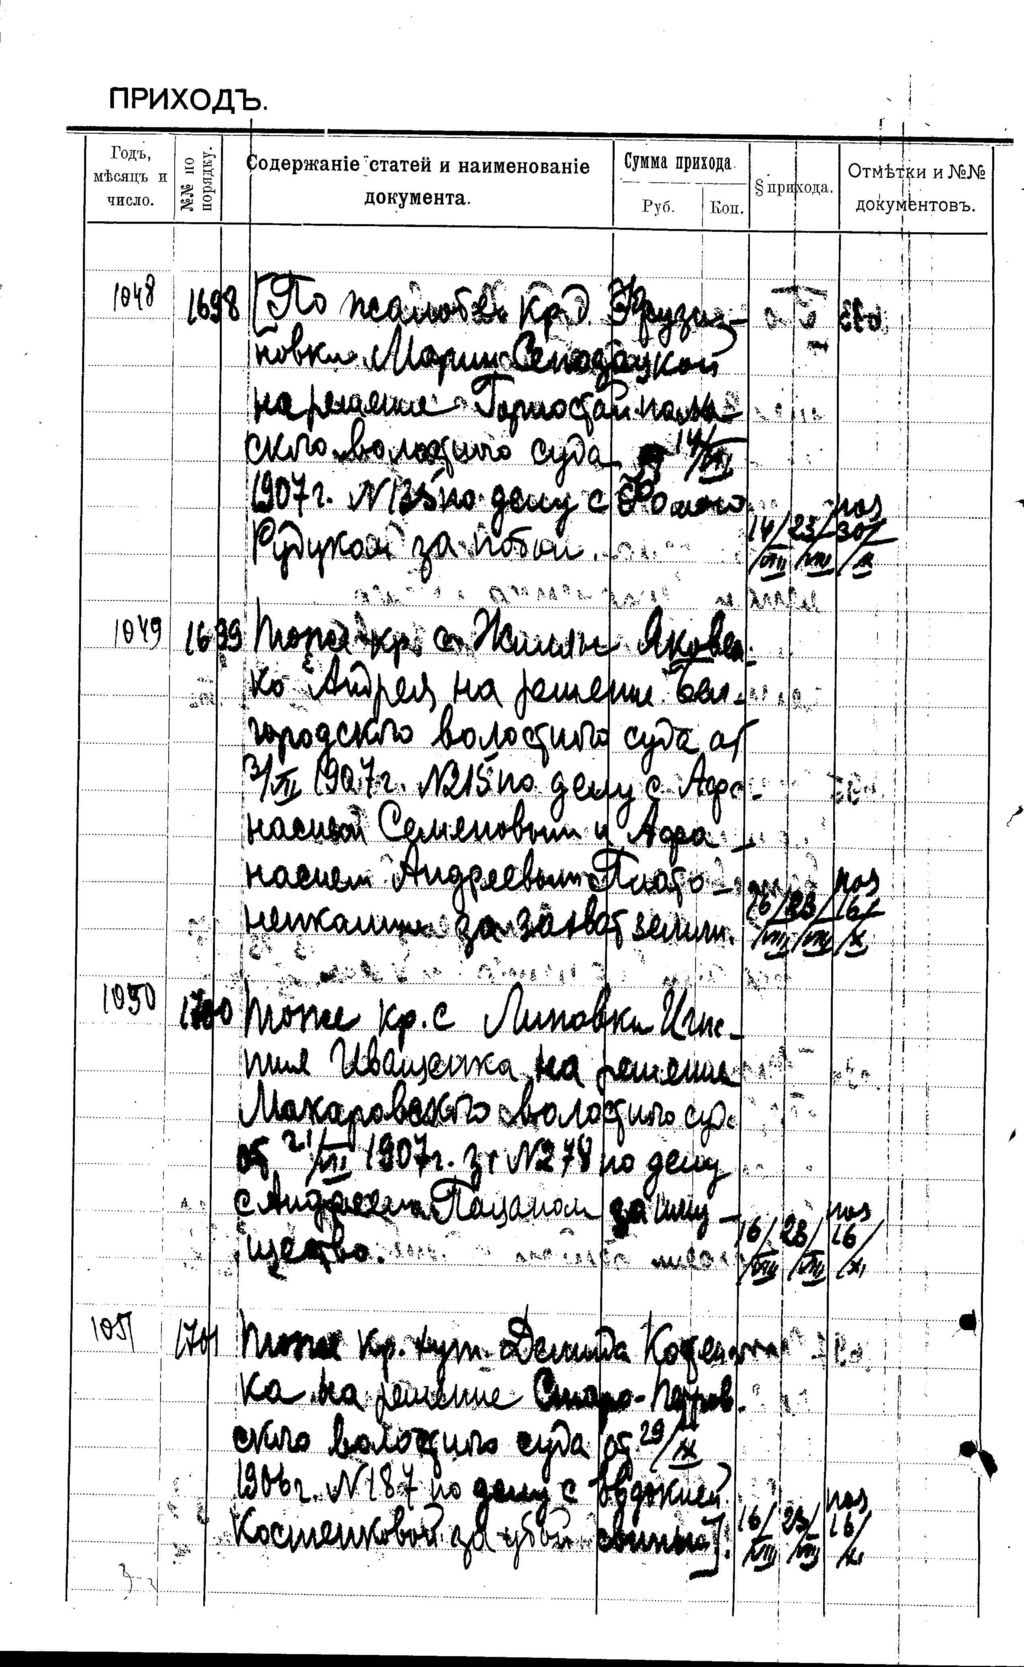 ПРИХОДЪ.
Годъ, мѣсяцъ и число.
№№ по порядку.
Содержаніе статей и наименованіе документа.
Сумма прихода.
Руб.
Коп.
§ прихода.
Отмѣтки и №№ документовъ.
1048 1698 [По жалобе кр. д. Фрузи-
новки Марии
на решение Горностайполь-
ского волостного суда 14/VII
1907 г. N 135 по делу с Фомою
Рудухой за побои. 14/VIII 23/VIII 30/X
1049 1699 Тоже кр. с. Жилян Яковен-
ко Андрея на решение Бел-
городского волостного суда от
3/VII 1907 г. N215 по делу с Афа-
насием Семеновым и Афа-
насием Андреевым Плато-
ненками за захват земли. 16/VIII 23/VIII 16/XI
1050 1700 Тоже кр. с Липовки Игна-
тия Иващенка на решение
Макаровского волостного суда
от 21/VII 1907 г. за N278 по делу
с Андреем Пацаном за иму-
щество. 16/VIII 23/VIII 16/XI
1051 1701 Тоже кр. хут. Демида
ка на решение Старо-Петров-
ского волостного суда от 29/IX
1906 г. N187 по делу с Евдокией
Костенковой за убой свиньи]. 16/VIII 23/VIII 16/XI